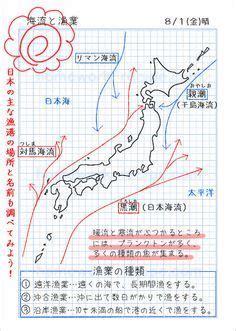 海流と漁業
8/1(金)晴
リマン海流
おやしお
親潮
(千島海流)
日本海
つしま
対馬海流
太平洋
くろしお
黒潮(日本海流)
日本の主な漁港の場所と名前も調べてみよう！
暖流と寒流がぶつかるところ
には、プランクトンが多く、
多くの種類の魚が集まる。
漁業の種類
① 遠洋漁業…遠くの海で、長期間漁をする。
② 沖合漁業…沖に出て数日がかりで漁をする。
③ 沿岸漁業…10t未満の船で港の近くで漁をする。